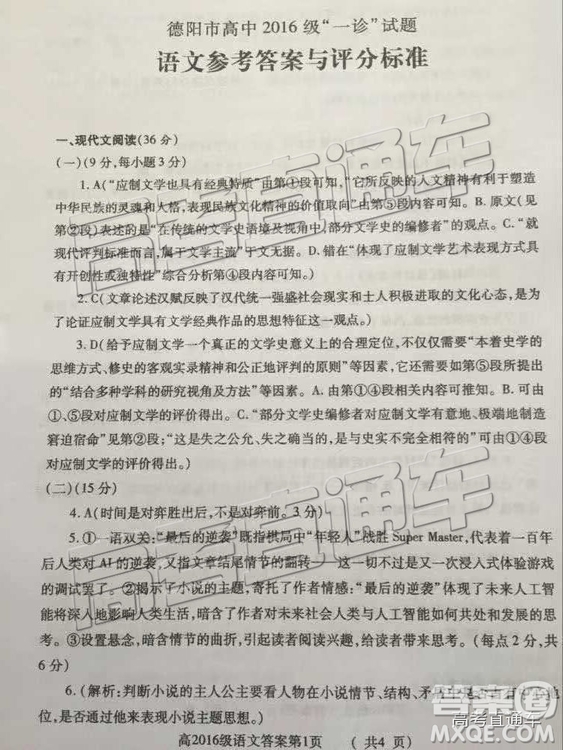 德阳市高中 2016 级“一诊”试题
语文参考答案与评分标准
一、现代文阅读(36 分)
(一)(9 分,每小题 3 分)
1. A(“应制文学也具有经典特质”由第①段可知,“它所反映的人文精神有利于塑造
中华民族的灵魂和人格,表现民族文化精神的价值取向”由第④段可知。B. 原文(见
第②段)表述的是“在传统的文学史语境及视角中,部分文学史的编修者”的观点。C. “就
现代评判标准而言,属于文学主流”于文无据。D. 错在“体现了应制文学艺术表现方式具
有开创性或独特性”综合分析第④段内容可知。)
2. C(文章论述汉赋反映了汉代统一强盛社会现实和士人积极进取的文化心态,是为
了论证应制文学具有文学经典作品的思想特征这一观点。)
3. D(给予应制文学一个真正的文学史意义上的合理定位,不仅仅需要“本着史学的
思维方式、修史的客观实录精神和公正地评判的原则”等因素,它还需要如第⑤段所提出
的“结合多种学科的研究视角及方法”等因素。A. 由第①④段相关内容可以得出。B. 可由
①④、⑤段对应制文学的评价得出。C. “部分文学史编修者对应制文学有意地、极端地制造
窘迫宿命”见第②段;“这是失之公允、失之确当的,与史实不完全相符的”可由①④段
对应制文学的评价得出。)
(二)(15 分)
4. A(时间是对弈胜出后,不是对弈前。3 分)
5. ①一语双关:“最后的逆袭”既指棋局中“年轻人”战胜 Super Master,代表着一百年
后人类对 AI 的逆袭,又指文章结尾情节的翻转——这一切不过是又一次浸入式体验游戏
的调试罢了。②揭示了小说的主题,寄托了作者情感:“最后的逆袭”体现了未来人工智
能将深入地影响人类生活,暗含了作者对未来社会人类与人工智能如何共处和发展的思
考。③设置悬念,暗含情节的曲折,引起读者阅读兴趣,给读者带来思考。(每点 2 分,共
6 分)
6. (解析:判断小说的主人公主要看人物在小说情节、结构、矛盾
位,是否通过他来表现小说主题思想。)
高2016级语文答案第1页 (共4 页)
高考直通车
高考直通车
高考直通车
高考直通车